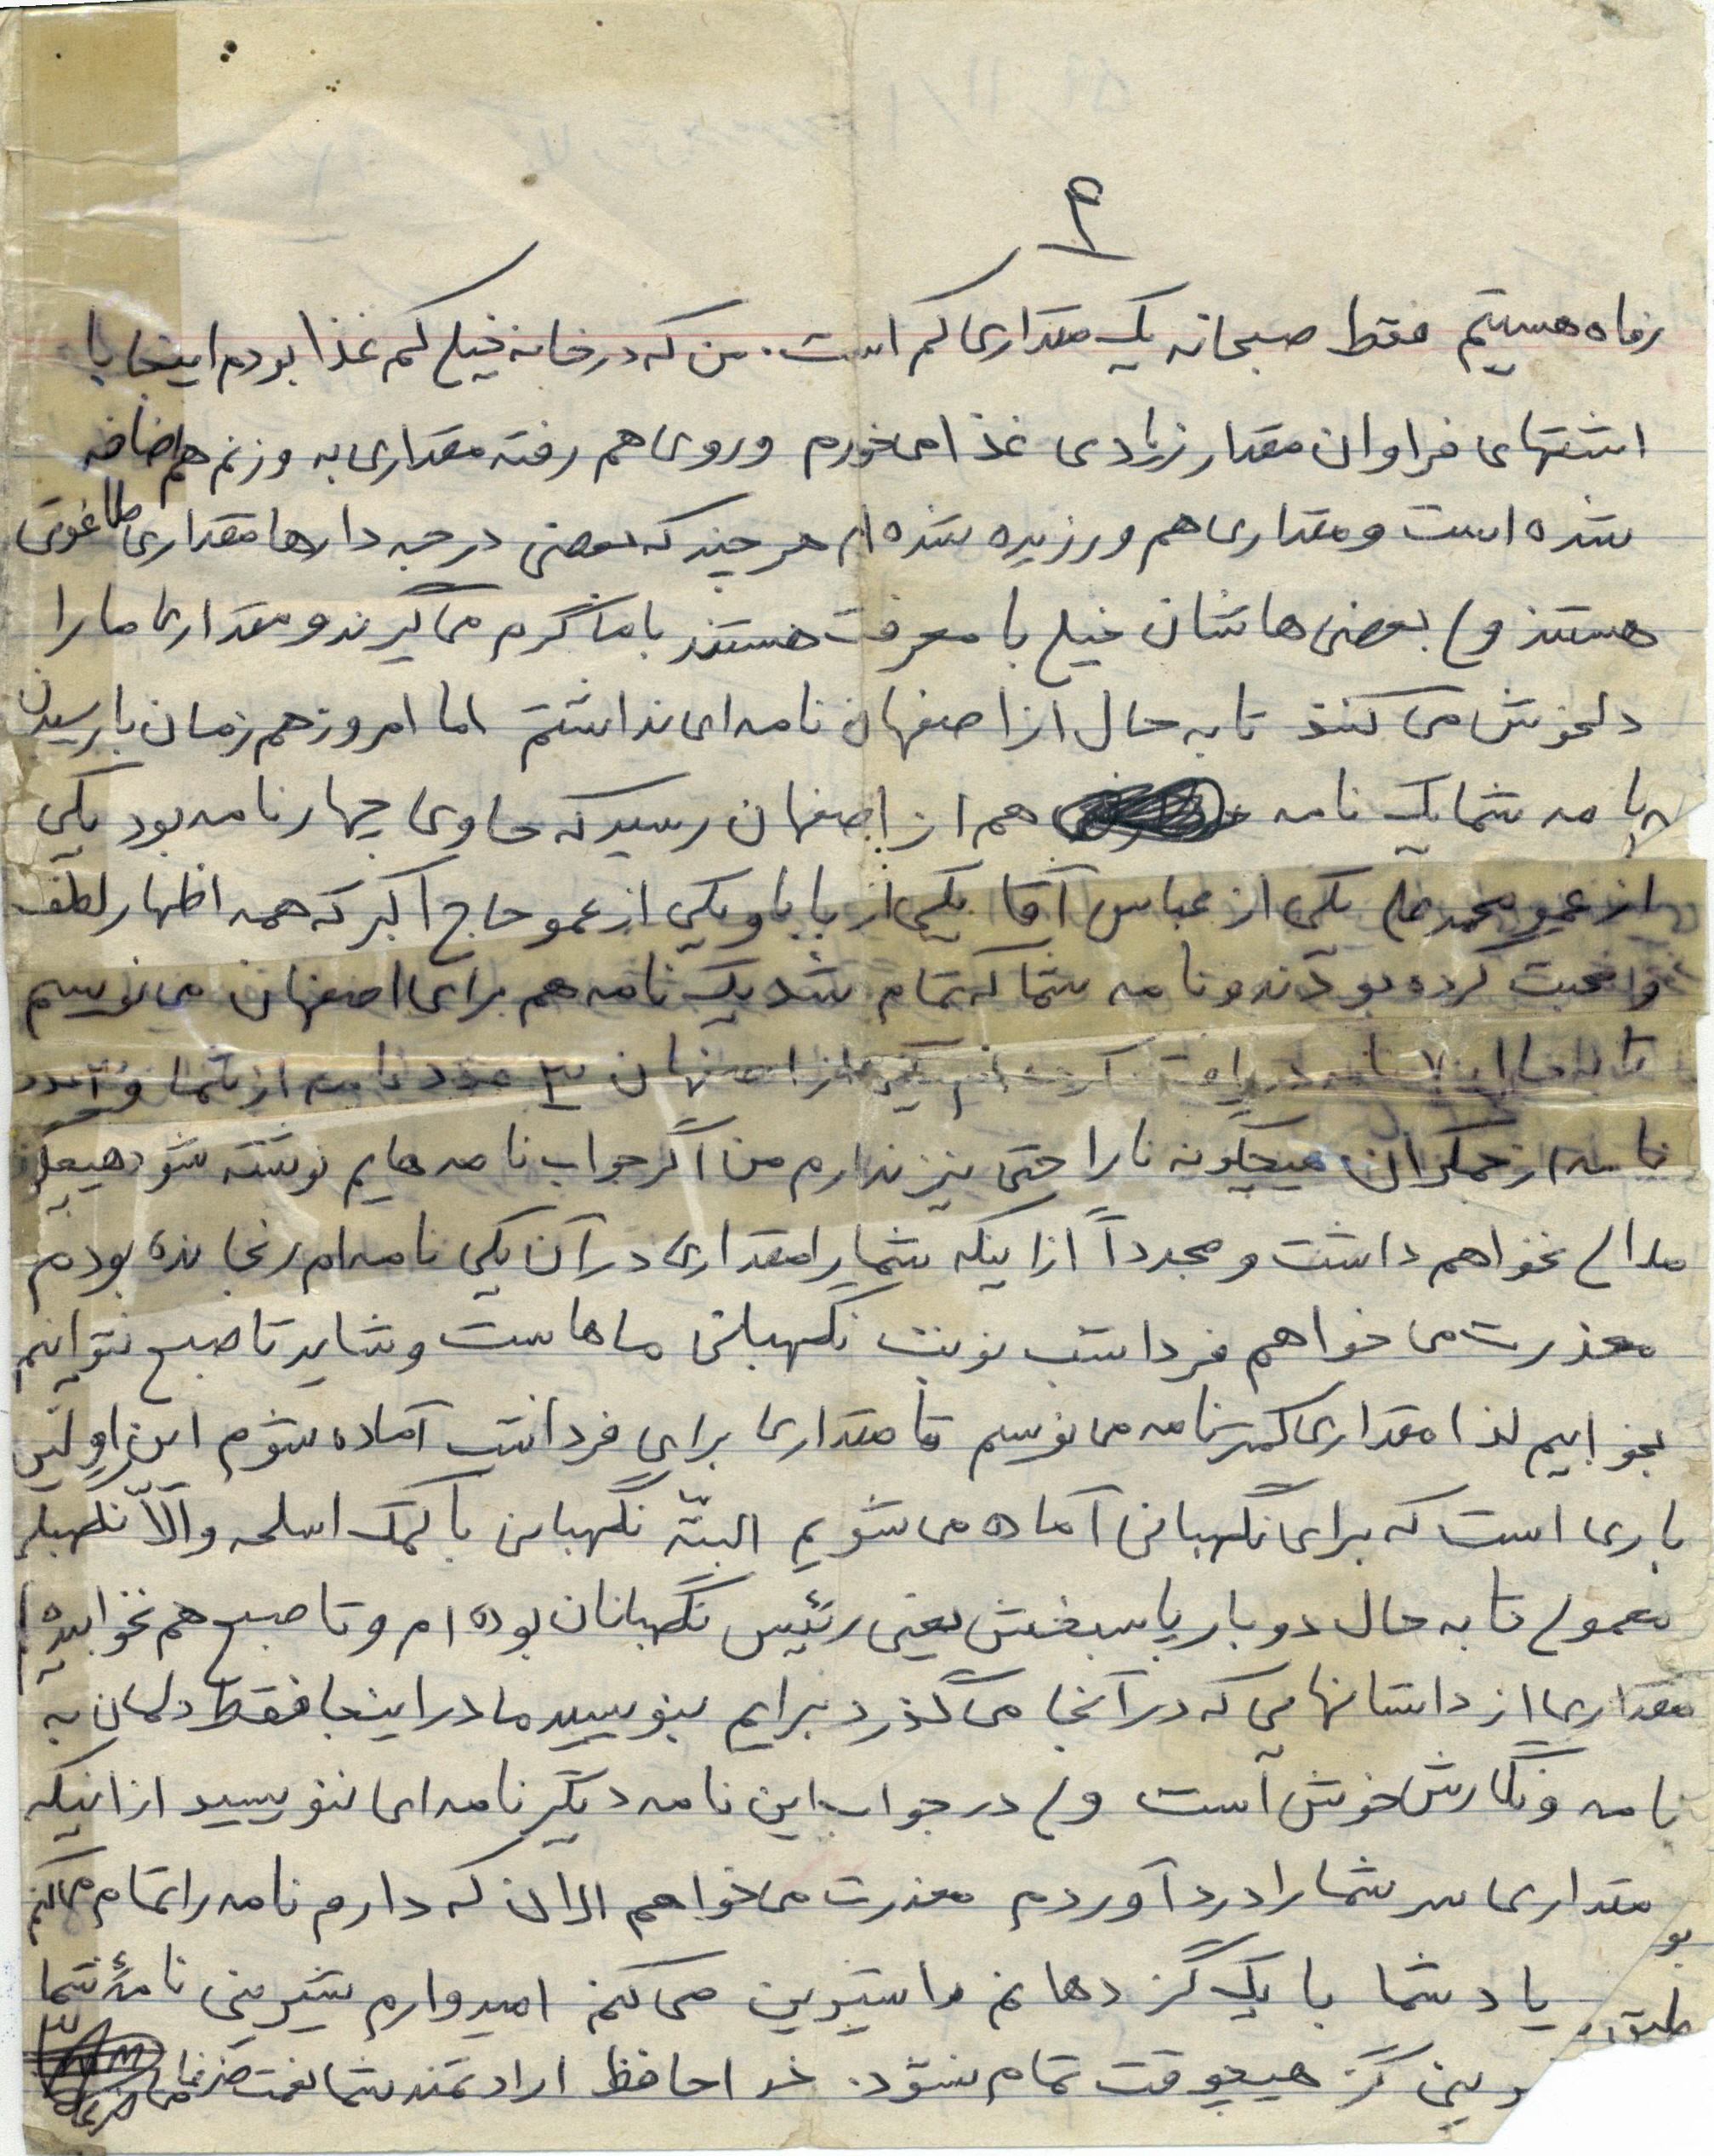 ۴
رفاه هستیم فقط صبحانه یک مقداری کم است. من که در خانه خیلی کم غذا بودم اینجا با
اشتهای فراوان مقدار زیادی غذا می خورم و روی هم رفته مقداری به وزنم هم اضافه
شده است و مقداری هم ورزیده شده ام هر چند که بعضی درجه دارها مقداری طاغوتی
هستند ولی بعضی هاشان خیلی با معرفت هستند با ما گرم می گیرند و مقداری ما را
دلخوش می کنند تا به حال از اصفهان نامه ای نداشتم اما امروز هم زمان با رسیدن
نامه شما یک نامه هم از اصفهان رسید که حاوی چهار نامه بود یکی
از عمو محمد علی یکی از عباس آقا یکی از بابا و یکی از عمو حاج اکبر که همه اظهار لطف
و محبت کرده بودند و نامه شما که تمام شد یک نامه هم برای اصفهان می نویسم
تا بحال ۷ نامه دریافت کرده ام یکی از اصفهان ۳ عدد نامه از شما و
نامه از جمکران هیچگونه ناراحتی نیز ندارم من اگر جواب نامه هایم نوشته شود هیچگونه
ملالی نخواهم داشت و مجدداً از اینکه شما را مقداری در آن یکی نامه ام رنجانده بودم
معذرت می خواهم فردا شب نوبت نگهبانی ماهاست و شاید تا صبح نتوانیم
بخوابیم لذا مقداری کمتر نامه می نویسم تا مقداری برای فردا شب آماده شوم این اولین
باری است که برای نگهبانی آماده می شویم البتّه نگهبانی با کمک اسلحه والاّ نگهبانی
معمولی تا به حال دو بار پاسبخش یعنی رئیس نگهبانان بوده ام و تا صبح هم نخوابیده ام
مقداری از داستانهایی که در آنجا می گذرد برایم بنویسید ما در اینجا فقط دلمان به
نامه و نگارش خوش است ولی در جواب این نامه دیگر نامه ای ننویسید از اینکه
مقداری سر شما را درد آوردم معذرت می خواهم الان که دارم نامه را تمام می کنم
یاد شما با یک گز دهانم را شیرین می کنم امیدوارم شیرینی نامۀ شما
گز هیچوقت تمام نشود. خداحافظ ارادتمند شما نعمت